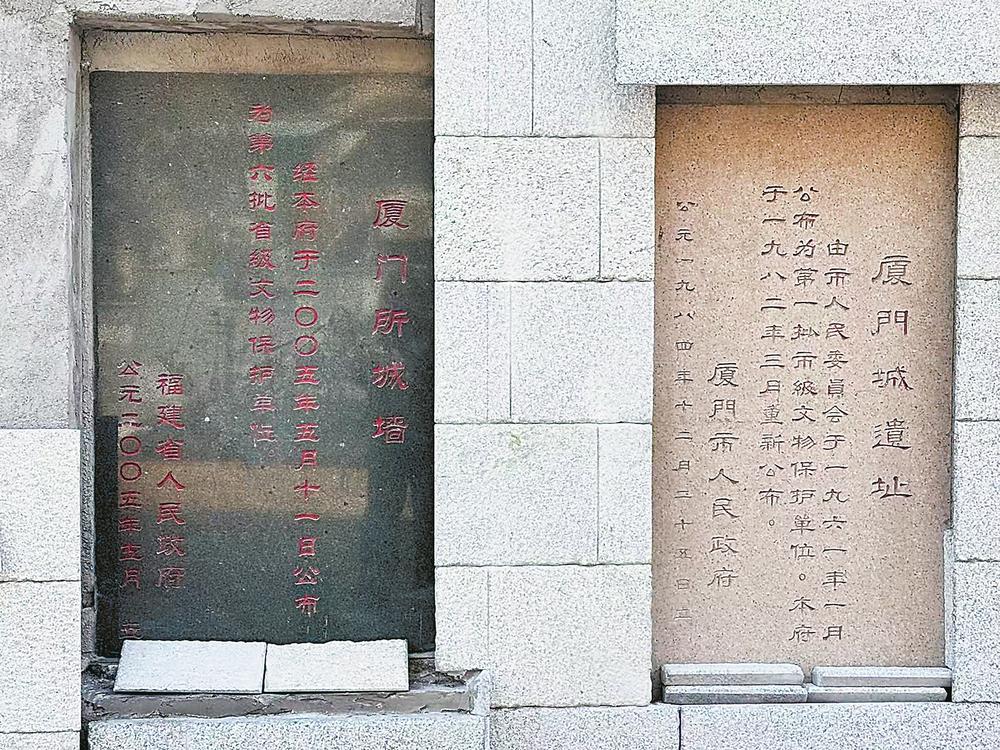 厦门所城墙
经本府于二〇〇五年五月十一日公布
为第六批省级文物保护单位
福建省人民政府
公元二〇〇五年五月 立
厦門城遺址
由市人民委員会于一九六一年一月
公布为第一批市級文物保护單位。本府
于一九八二年三月重新公布。
厦門市人民政府
公元一九八四年十二月二十五日立